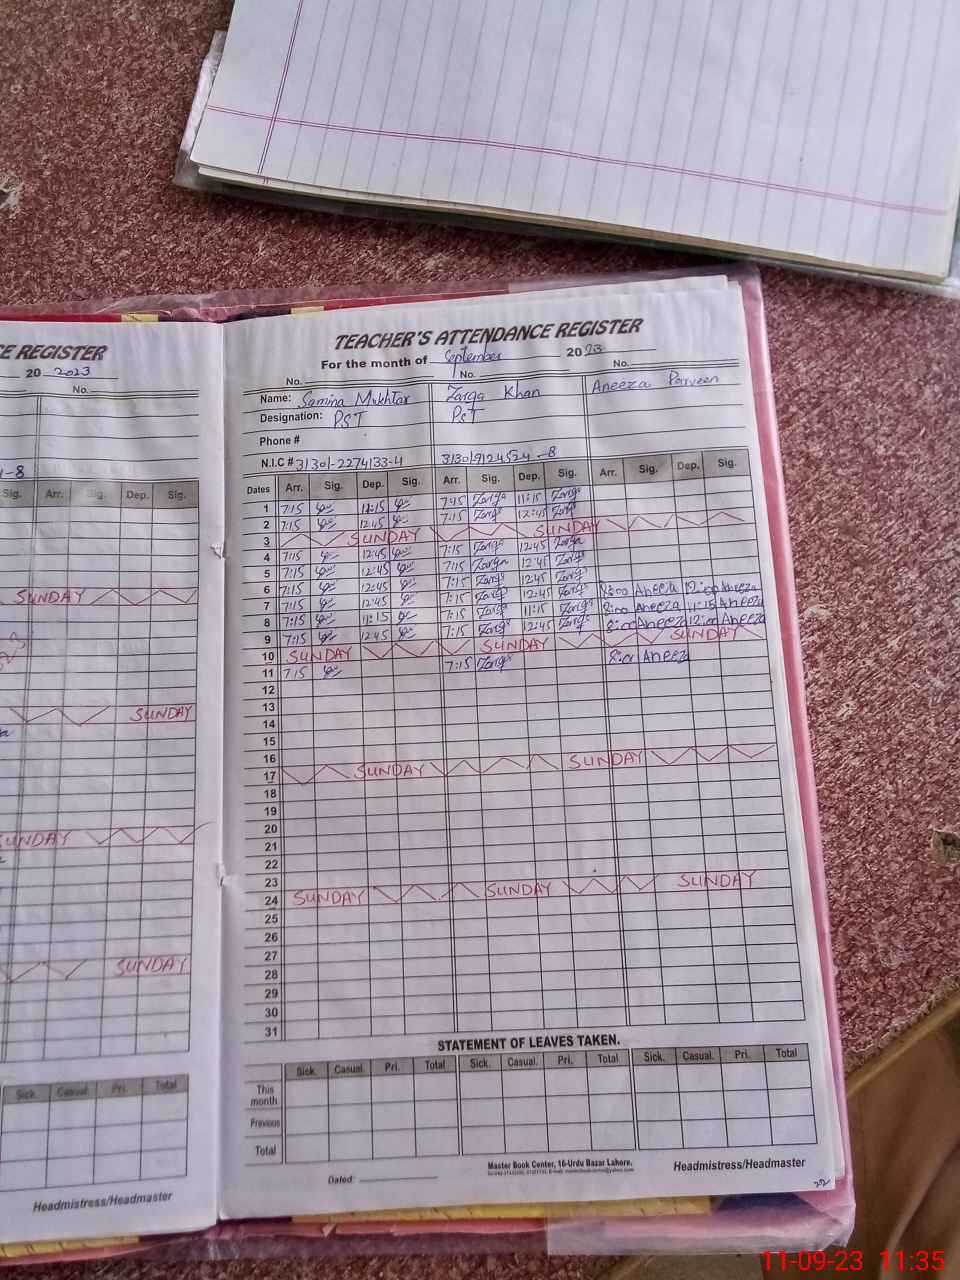 CE REGISTER
20 2023
No.
1-8
Sig. Arr. Sig. Dep. Sig.
SUNDAY
SUNDAY
SUNDAY
SUNDAY
Sick. Casual. Pri. Total
Headmistress/Headmaster
TEACHER'S ATTENDANCE REGISTER
For the month of September 20 23
No. No. No.
Name: Samina Mukhtar Zarqa Khan Aneeza Parveen
Designation: PST PST
Phone #
N.I.C # 31301-2274133-4 313019124524-8
Dates Arr. Sig. Dep. Sig. Arr. Sig. Dep. Sig. Arr. Sig. Dep. Sig.
1 7:15 11:15 7:45 Zarqa 11:15 Zarqa
2 7:15 12:45 7:15 Zarqa 12:45 Zarqa
3 SUNDAY SUNDAY
4 7:15 12:45 7:15 Zarqa 12:45 Zarqa
5 7:15 12:45 7:15 Zarqa 12:45 Zarqa
6 7:15 12:45 7:15 Zarqa 12:45 Zarqa
7 7:15 12:45 7:15 Zarqa 12:45 Zarqa 8:00 Aneeza 12:00 Aneeza
8 7:15 11:15 7:15 Zarqa 11:15 Zarqa 8:00 Aneeza 11:15 Aneeza
9 7:15 12:45 7:15 Zarqa 12:45 Zarqa 8:00 Aneeza 12:00 Aneeza
10 SUNDAY SUNDAY SUNDAY
11 7:15 7:15 Zarqa 8:00 Aneeza
12
13
14
15
16
17 SUNDAY SUNDAY
18
19
20
21
22
23
24 SUNDAY SUNDAY SUNDAY
25
26
27
28
29
30
31
STATEMENT OF LEAVES TAKEN.
Sick. Casual. Pri. Total Sick. Casual. Pri. Total Sick. Casual. Pri. Total
This month
Previous
Total
Dated:
Master Book Center, 16-Urdu Bazar Lahore.
Headmistress/Headmaster
22
11-09-23 11:35